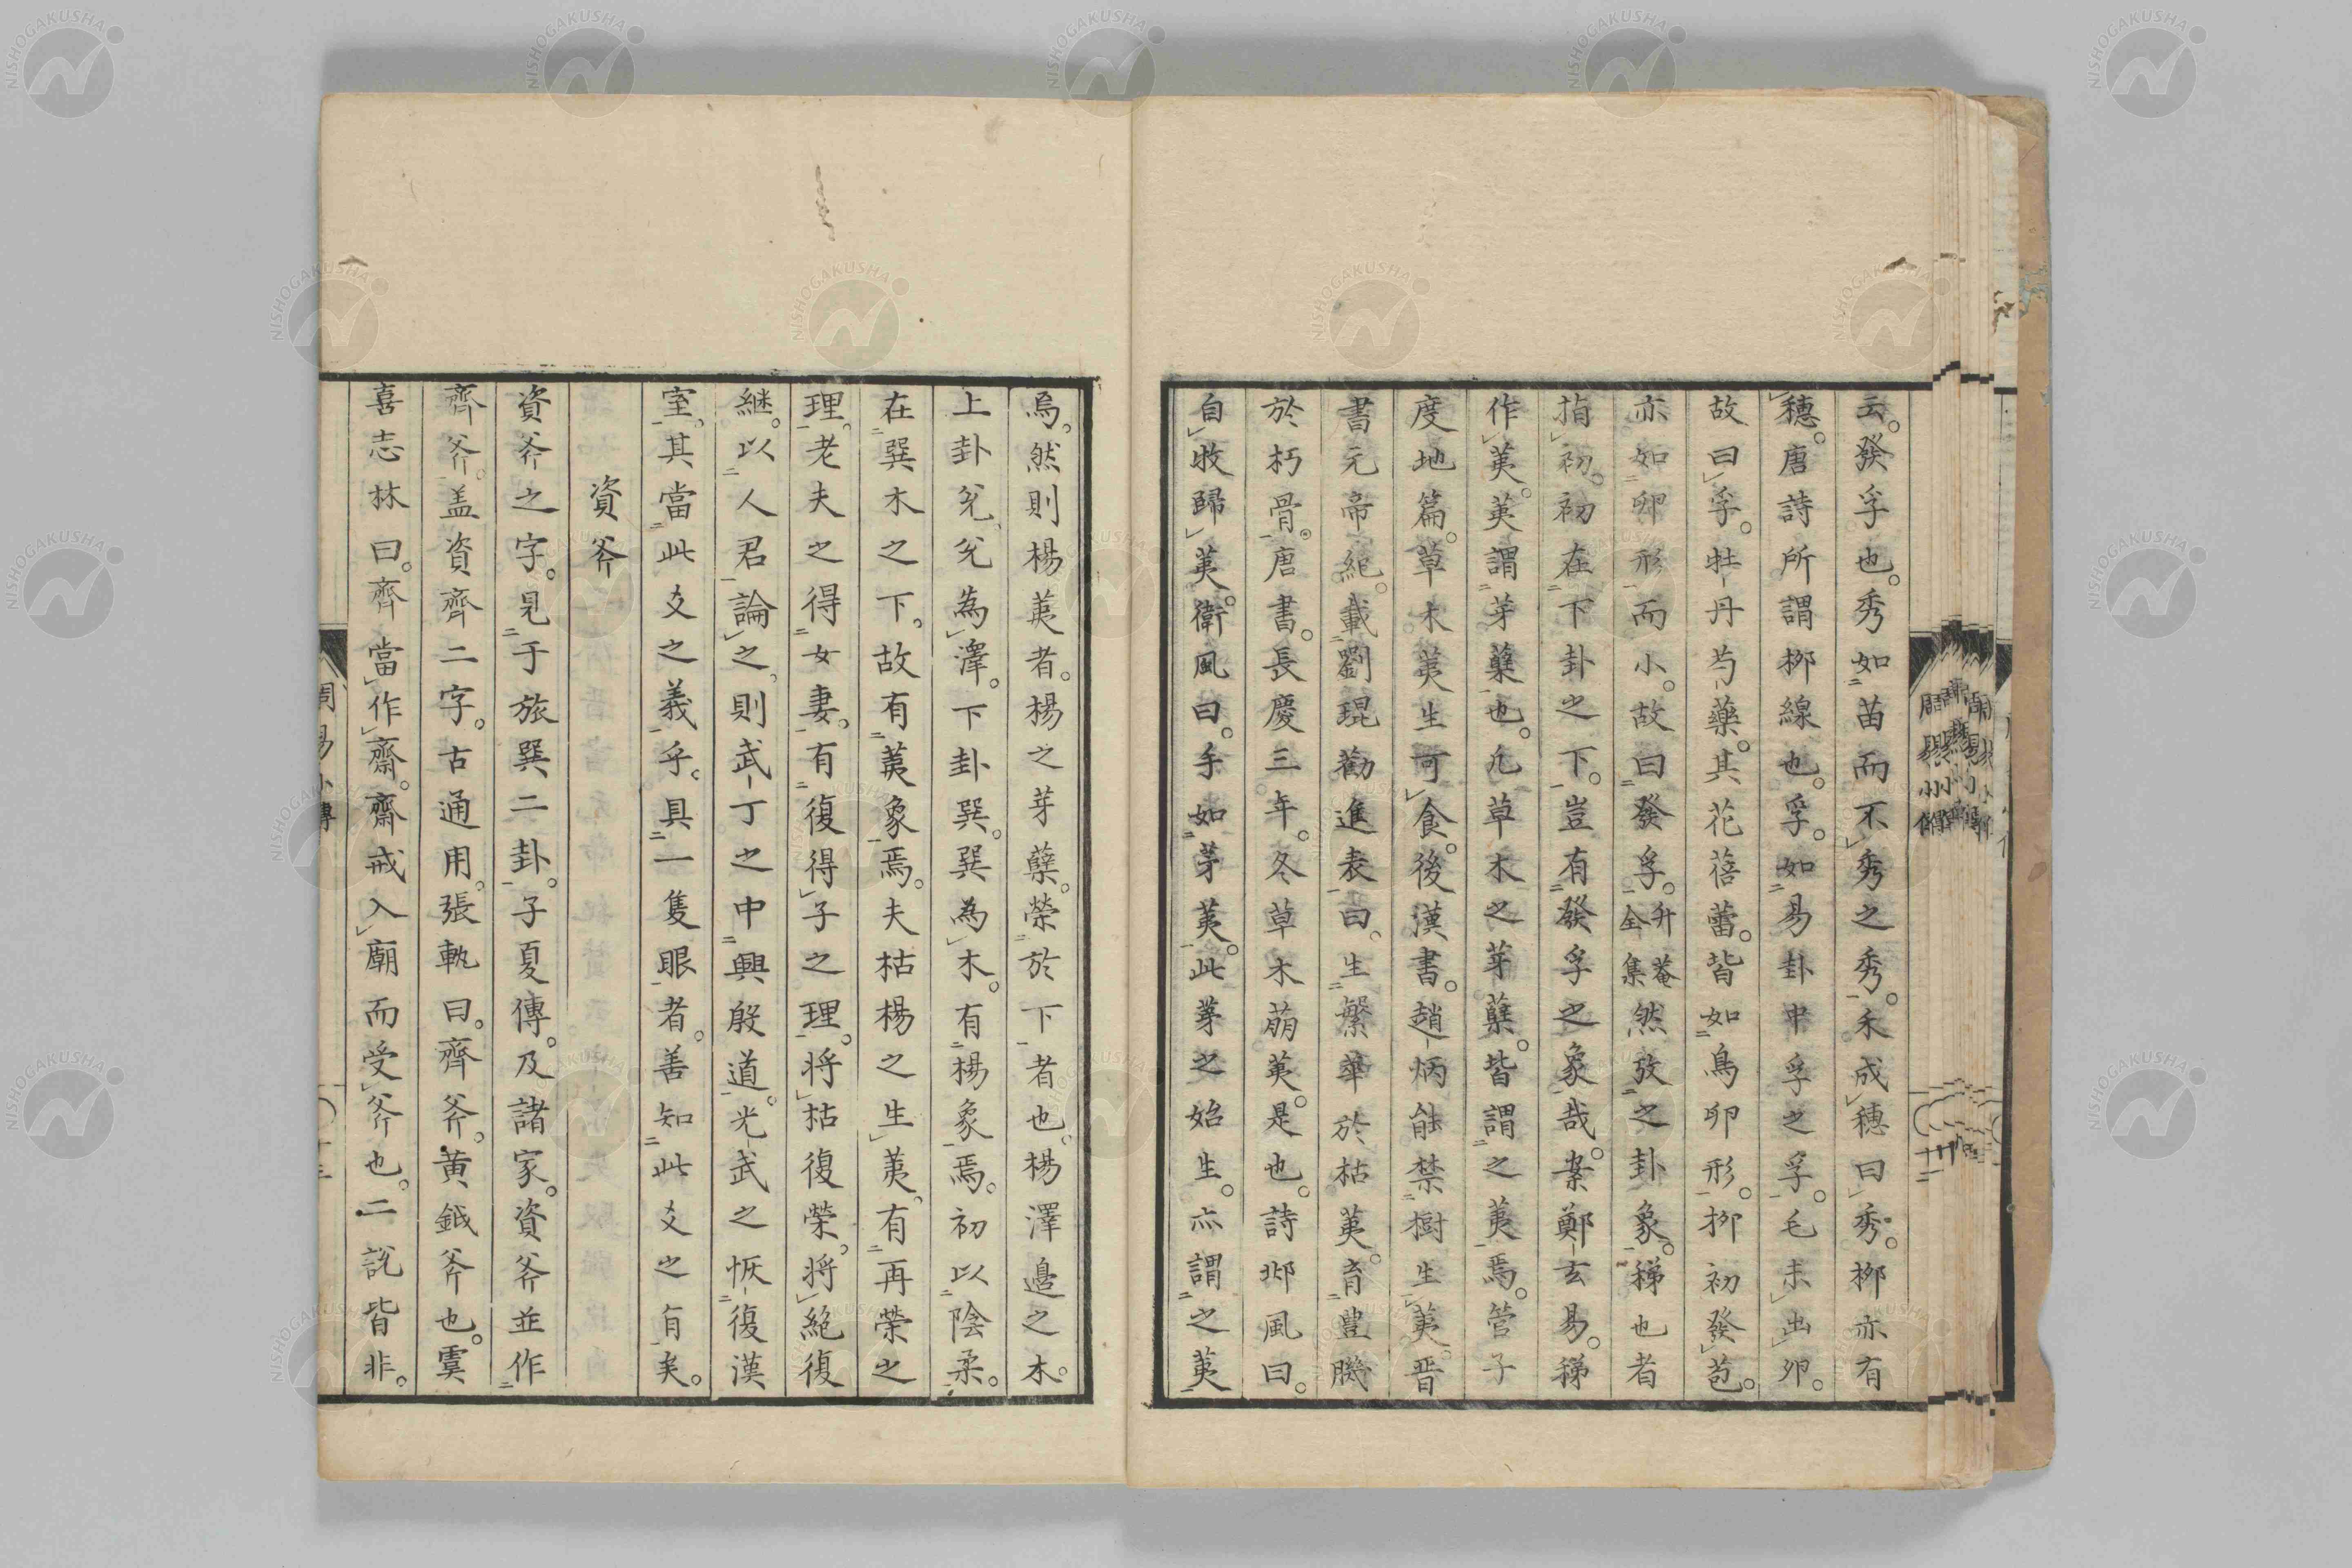 云。發孚也。秀如苗而不秀之秀。禾成穗曰秀。栁亦有
穗。唐詩所謂栁線也。孚。如易卦中孚之孚。毛未出卵。
故曰孚。牡丹芍藥。其花蓓蕾。皆如鳥卵形。栁初發苞。
亦如卵形而小。故曰發孚。升菴全集然攷之卦象。稊也者
指初。初在下卦之下。豈有發孚之象哉。案鄭玄易。稊
作荑。荑謂芽蘖也。凡草木之芽蘖。皆謂之荑焉。管子
度地篇。草木荑生可食。後漢書。趙炳能禁樹生荑。晋
書元帝紀。載劉琨勸進表曰。生繁華於枯荑。育豊肌
於朽骨。唐書。長慶三年。冬草木萠荑。是也。詩邶風曰。
自牧歸荑。衛風曰。手如荑。此茅之始生。亦謂之荑
焉。然則楊荑者。楊之芽蘖。榮於下者也。楊澤邉之木。
上卦兊。兊為澤。下卦巽。巽為木。有楊象焉。初以陰柔。
在巽木之下。故有荑象焉。夫枯楊之生荑。有再榮之
理。老夫之得女妻。有復得子之理。将枯復榮。将絶復
継。以人君論之。則武丁之中興殷道。光武之恢復漢
室。其當此爻之義乎。具一隻眼者。善知此爻之旨矣。
資斧
資斧之字。見于旅巽二卦。子夏傳。及諸家。資斧並作
齊斧。盖資齊二字。古通用。張軌曰。齊斧。黄鉞斧也。虞
喜志林曰。齊當作齋。齋戒入廟而受斧也。二說皆非。
周易小傳